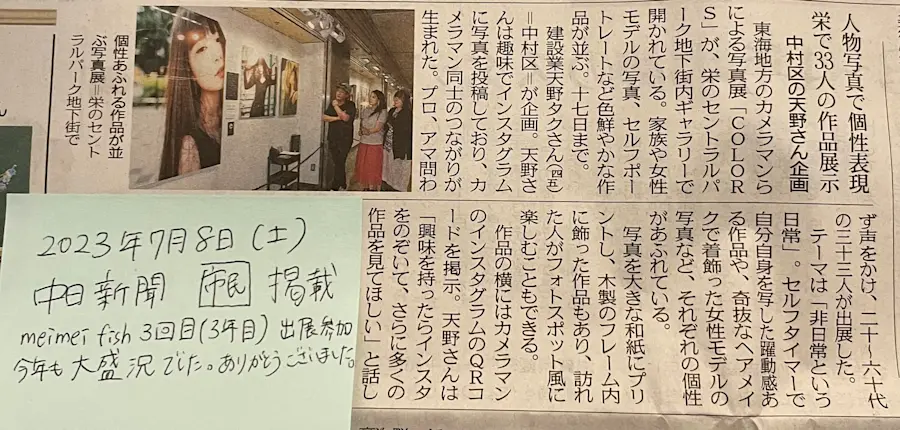 人物写真で個性表現
栄で33人の作品展示
中村区の天野さん企画
東海地方のカメラマンら
による写真展「COLOR
S」が、栄のセントラルパ
ーク地下街内ギャラリーで
開かれている。家族や女性
モデルの写真、セルフポー
トレートなど色鮮やかな作
品が並ぶ。十七日まで。
建設業天野タクさん(四五)
=中村区=が企画。天野さ
んは趣味でインスタグラム
に写真を投稿しており、カ
メラマン同士のつながりが
生まれた。プロ、アマ問わ
個性あふれる作品が並
ぶ写真展=栄のセント
ラルパーク地下街で
ず声をかけ、二十〜六十代
の三十三人が出展した。
テーマは「非日常という
日常」。セルフタイマーで
自分自身を写した躍動感あ
る作品や、奇抜なヘアメイ
クで着飾った女性モデルの
写真など、それぞれの個性
があふれている。
写真を大きな和紙にプリ
ントし、木製のフレーム内
に飾った作品もあり、訪れ
た人がフォトスポット風に
楽しむこともできる。
作品の横にはカメラマン
のインスタグラムのQRコ
ードを掲示。天野さんは
「興味を持ったらインスタ
をのぞいて、さらに多くの
作品を見てほしい」と話し
2023年7月8日(土)
中日新聞 市民 掲載
meimei fish 3回目(3年目) 出展参加
今年も大盛況でした。ありがとうございました。